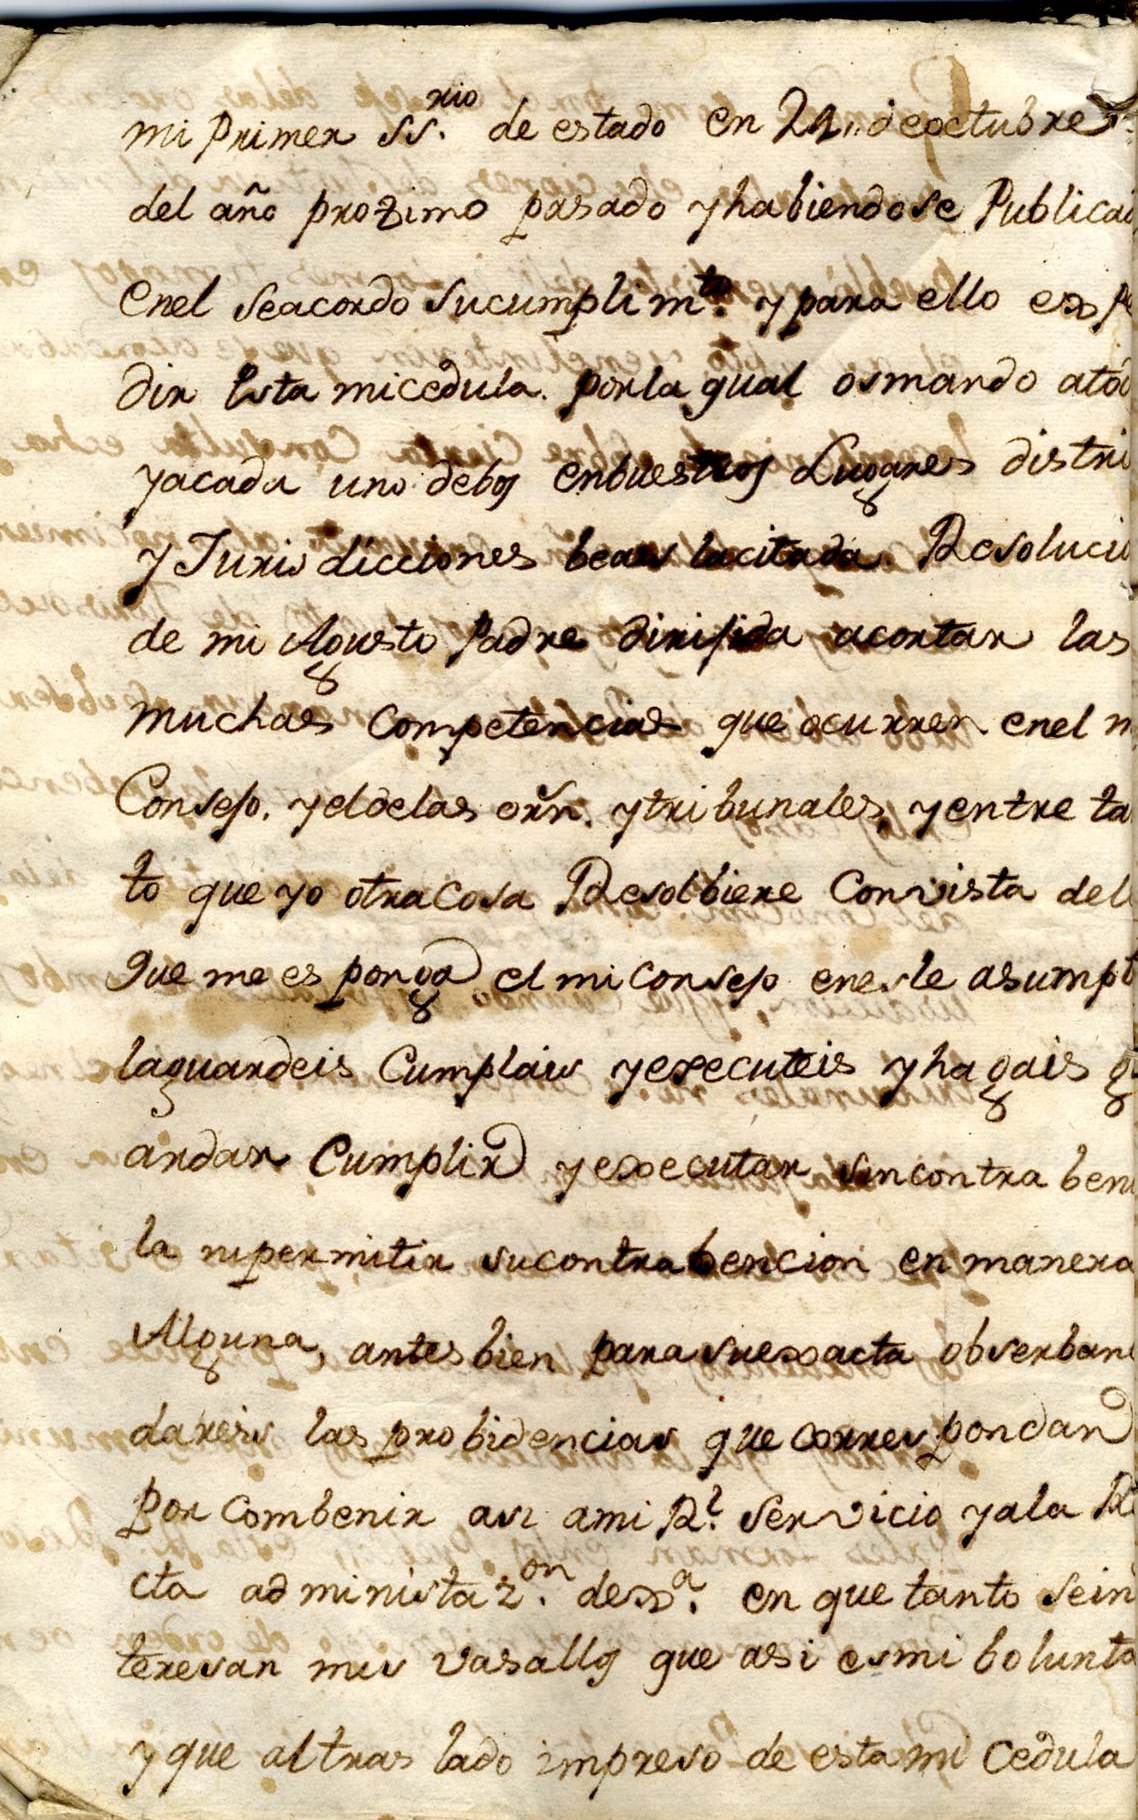 mi primer ss.rio de estado en 21,, de octubre
del año prozimo pasado y habiendose Publicad
enel seacordo sucumplimto. y para ello expe
dir Esta micedula. porla qual osmando atod
yacada uno debos enbuestros Lugares distri
y Jurisdicciones beais lacitada Resolucio
de mi Agusto Padre dirijida acortar las
muchas Competencias que ocurren enel m
Consejo. yeldelas orn. ytribunales, yentre ta
to que yo otraCosa Resolbiere Convista dell
que me esponga el miConsejo eneste asumpt
laguardeis Cumplais yexecuteis yhagais gu
ardar Cumplir yexecutar sincontrabeni
la nipermitir sucontrabencion en manera
Alguna, antesbien parasuexacta obserbanc
dareis las probidencias que corres pondan
por combenir asi ami Rl. Servicio yala Re
cta administazon. dexa. en que tanto sein
teresan mis vasallos que asi esmi bolunta
y que altraslado impreso de estami Cedula